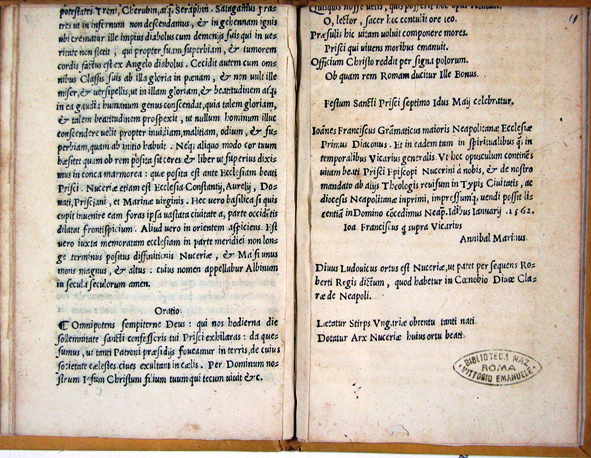 potestates Troni, Cherubim, atq; Seraphin. Satagamus Fra-
tres ut in infernum non descendamus, & in gehennam ignis
ubi crematur ille impius diabolus cum demonijs suis qui in ue-
ritate non stetit, qui propter suam superbiam, & tumorem
cordis factus est ex Angelo diabolus. Cecidit autem cum om-
nibus Classis suis ab illa gloria in pœnam, & non uult ille
miser, & uersipellis, ut in illam gloriam, & beatitudinem atq;
in ea gaudia humanum genus conscendat, quia talem gloriam,
& talem beatitudinem prospexit, ut nullum hominum illuc
conscendere uelit propter inuidiam, malitiam, odium, & su-
perbiam, quam ab initio habuit. Neq; aliquo modo cor tuum
hæsitet quam ob rem posita sit ceres & liber ut superius dixi-
mus in conca marmorea: que posita est ante Ecclesiam beati
Prisci. Nuceriæ etiam est Ecclesia Constantij, Aurelij, Do-
nati, Prisciani, et Marinæ uirginis. Hec uero basilica si quis
cupit inuenire eam foras ipsa uastata ciuitate a parte occidētis
dilatat frontispicium. Aliud uero in orientem aspiciens. Est
uero iuxta memoratam ecclesiam in parte meridiei non lon-
ge terminus positus diffinitionis Nuceriæ, & Massimus
mons magnus, & altus: cuius nomen appellabur Albinum
in secula seculorum amen.
Oratio
Omnipotens sempiterne Deus: qui nos hodierna die
sollemnitate sancti confessoris tui Prisci exhilaras: da que-
sumus, ut tanti Patroni præsidijs foueamur in terris, de cuius
societate cælestes ciues exultant in cælis. Per Dominum no-
strum Iesum Christum filium tuum qui tecum uiuit &c.
Quisquis nosse uelit, quis possit
O, lector, sacer hec centulit ore leo.
Præsulis hic uitam uoluit componere mores.
Prisci qui uiuens moribus emanuit.
Officium Christo reddit per signa polorum.
Ob quam rem Romam ducitur Ille Bonus.
Festum Sancti Prisci septimo Idus Maij celebratur.
Ioānes Franciscus Grāmaticus maioris Neapolitanæ Ecclesiæ
Primus Diaconus. Et in eadem tam in spiritualibus q; in
temporalibus Vicarius generalis. Vt hec opusculum continēs
uitam beati Prisci Episcopi Nucerini à nobis, & de nostro
mandato ab alijs Theologis reuisum in Typis Ciuitatis, ac
diocesis Neapolitanæ inprimi, impressumq; uendi possit li-
centiā in Domino cōcedimus Neap. Idibus Ianuarij .1562.
Ioa Franciscus q supra Vicarius
Annibal Marinus.
Diuus Ludouicus ortus est Nuceriæ, ut patet per sequens Ro-
berti Regis dictum, quod habetur in Cœnobio Diuæ Cla-
ræ de Neapoli.
Lætatur Stirps Vngariæ obtentu tanti nati.
Dotatur Arx Nuceriæ huius ortu beati.
BIBLIOTECA NAZ
ROMA
VITTORIO EMANUELE